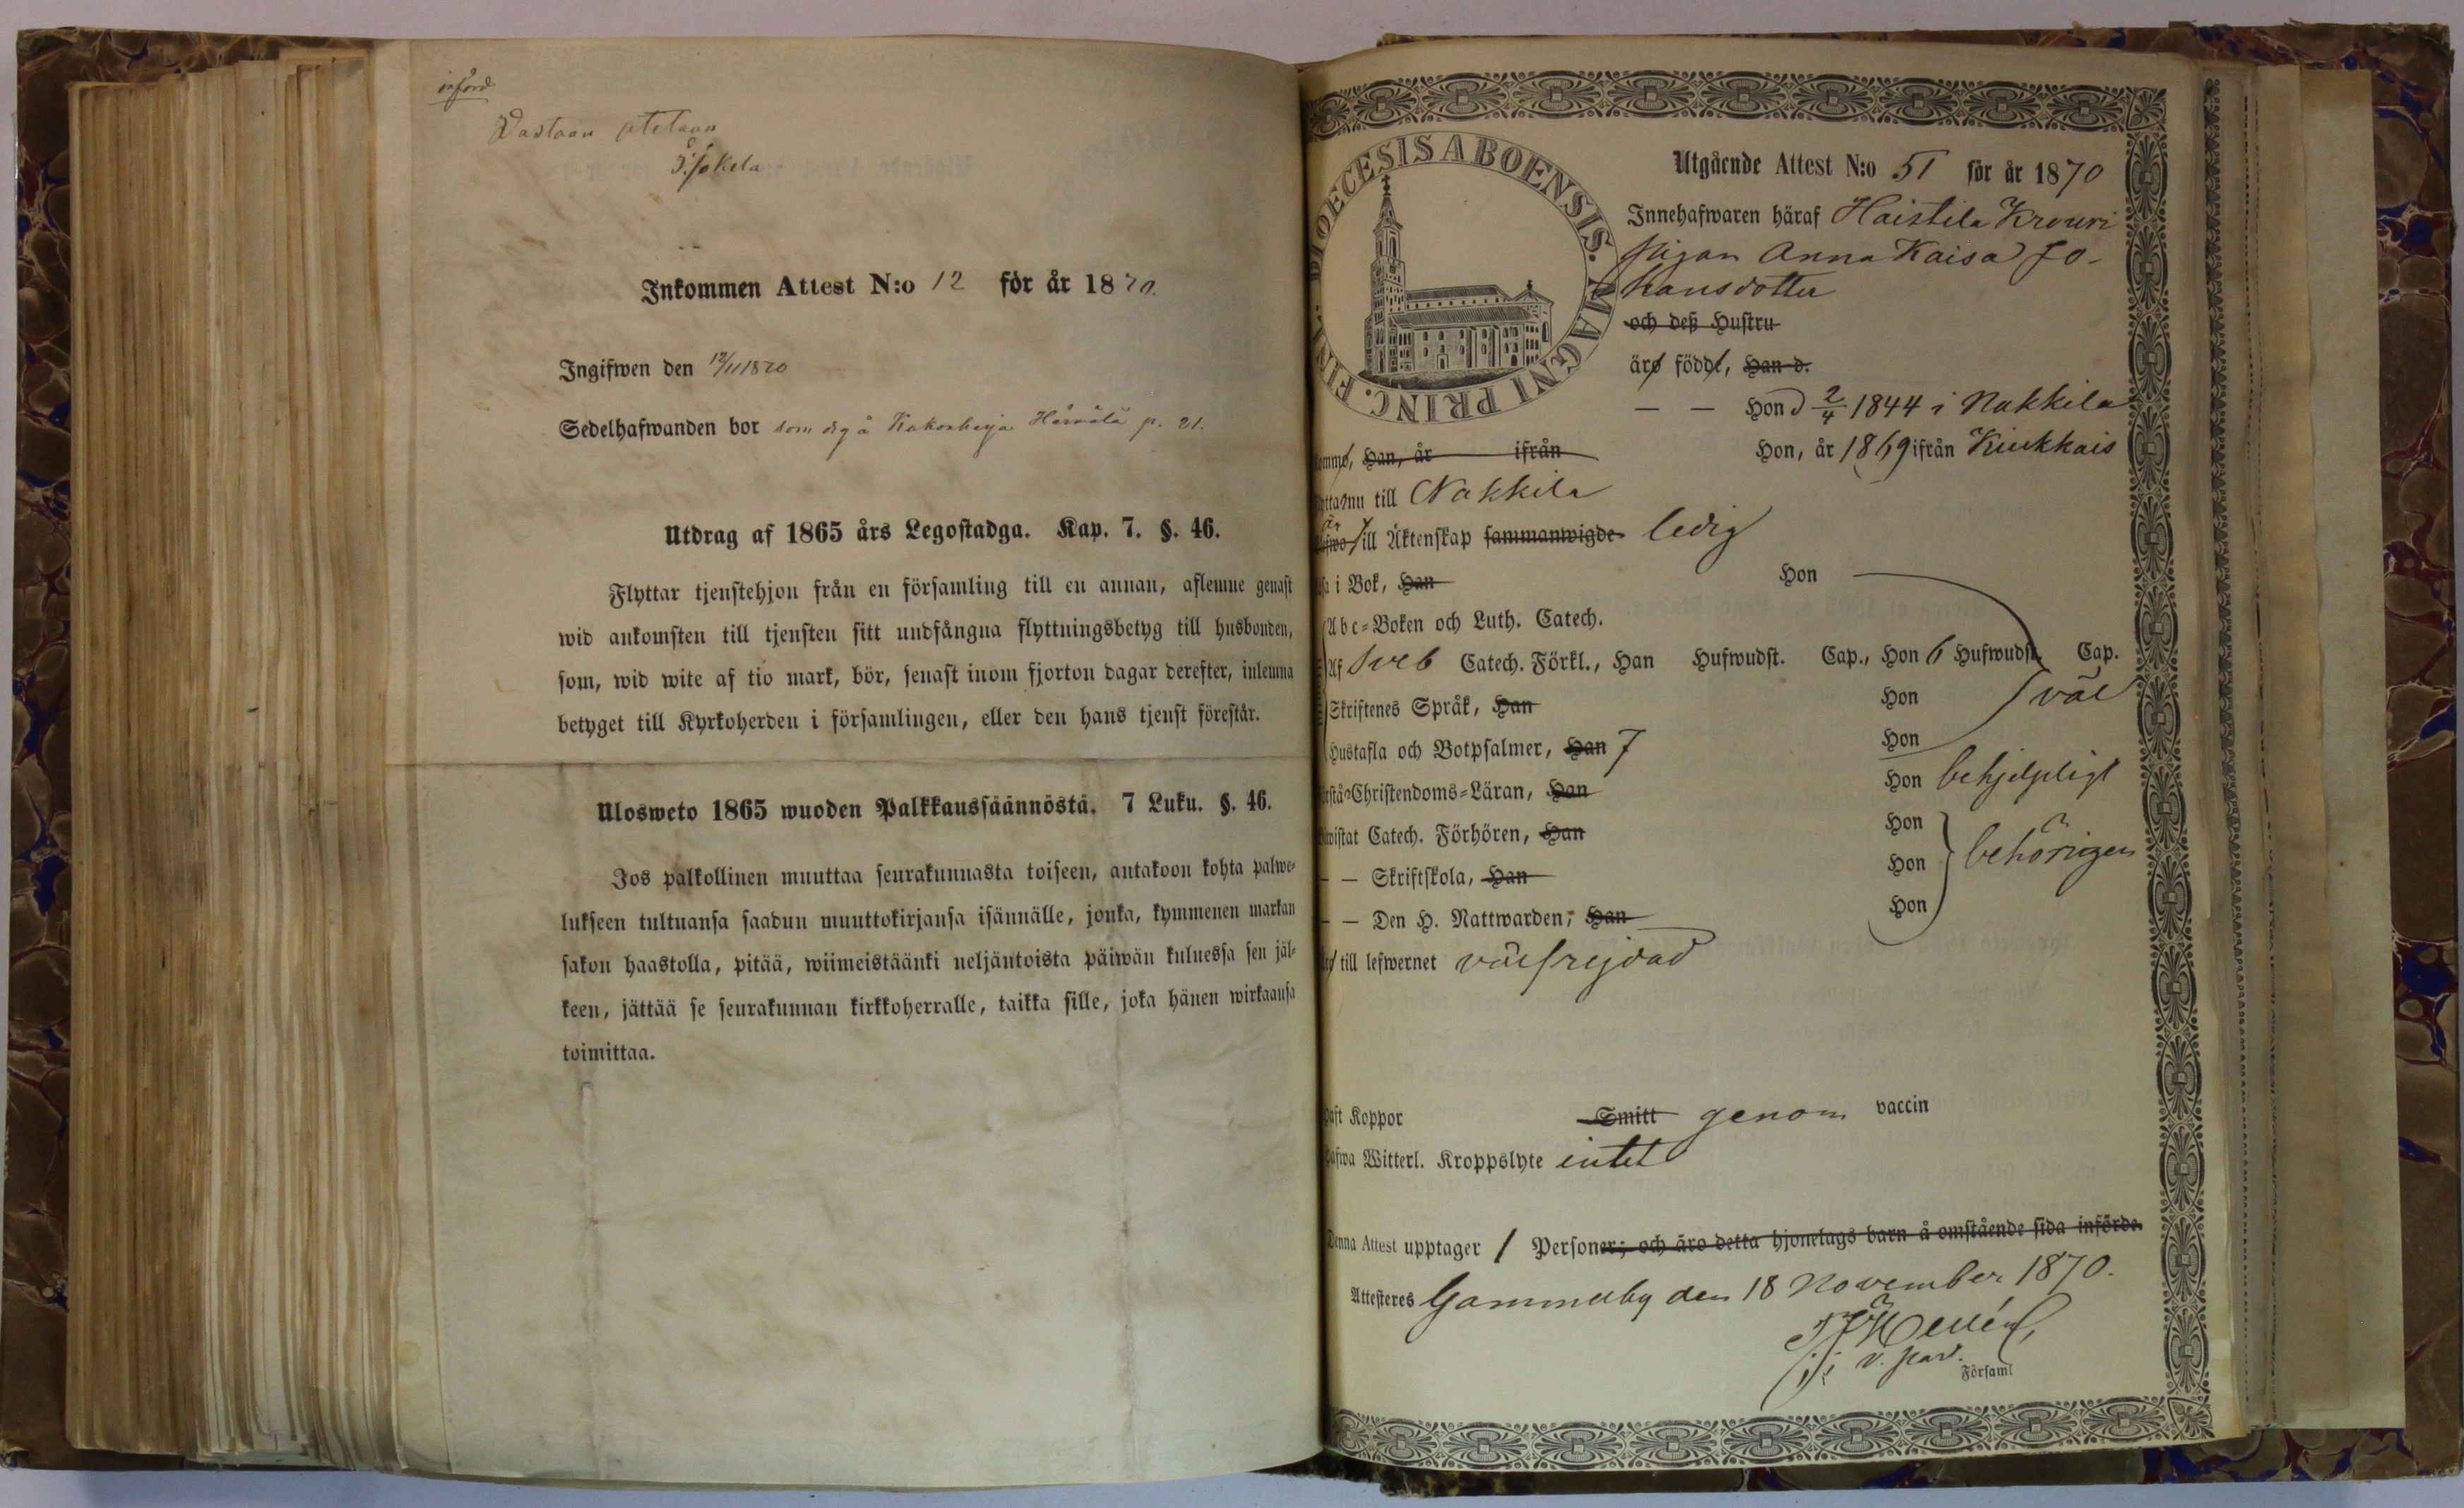 införd
Vastaan otetaan
Jokela
Inkommen Attest N:o 12 för år 1870.
Ingifwen den 12/11 1870
Sedelhafwanden bor som å p. 21.
Utdrag af 1865 års Legostadga. Kap. 7. §. 46.
Flyttar tjenstehjon från en församling till en annan, aflemne genast
wid ankomsten till tjensten sitt undfångna flyttningsbetyg till husbonden,
som, wid wite af tio mark, bör, senast inom fjorton dagar derefter, inlemna
betyget till Kyrkoherden i församlingen, eller den hans tjenst förestår.
Ulosweto 1865 wuoden Palkkaussäännöstä. 7 Luku. §. 46.
Jos palkollinen muuttaa seurakunnasta toiseen, antakoon kohta palwe-
lukseen tultuansa saadun muuttokirjansa isännälle, jonka, kymmenen markan
sakon haastolla, pitää, wiimeistäänki neljäntoista päiwän kuluessa sen jäl-
keen, jättää se seurakunnan kirkkoherralle, taikka sille, joka hänen wirkaansa
toimittaa.
DIOECESIS ABOENSIS. MAGNI PRINC. FINL.
Utgående Attest N:o 51 för år 1870
Innehafwaren häraf Haistila Krouvi
pigan Anna Kaisa Jo-
hansdotter
och deß Hustru
äro födde, Han d.
— — Hon d 2/4 1844 i Nakkila
Han, år ifrån Hon, år 1869 ifrån Kiukkais
nu till Nakkila
till Äktenskap sammanwigde ledig
i Bok, Han Hon
Abc-Boken och Luth. Catech.
Af Sveb Catech. Förkl., Han Hufwudst. Cap., Hon 6 Hufwudst. Cap.
Skriftenes Språk, Han Hon väl
Hustafla och Botpsalmer, Han 7 Hon
Christendoms-Läran, Han Hon behjelpligt
Catech. Förhören, Han Hon
— — Skriftskola, Han Hon behörigen
— — Den H. Nattwarden, Han Hon
till lefwernet välfrejdad
Koppor Smitt genom vaccin
Witterl. Kroppslyte intet
Denna Attest upptager 1 Personer; och äro detta hjonelags barn å omstående sida införde.
Attesteres Gammelby den 18 November 1870.
Hellén
v. past.
Församl